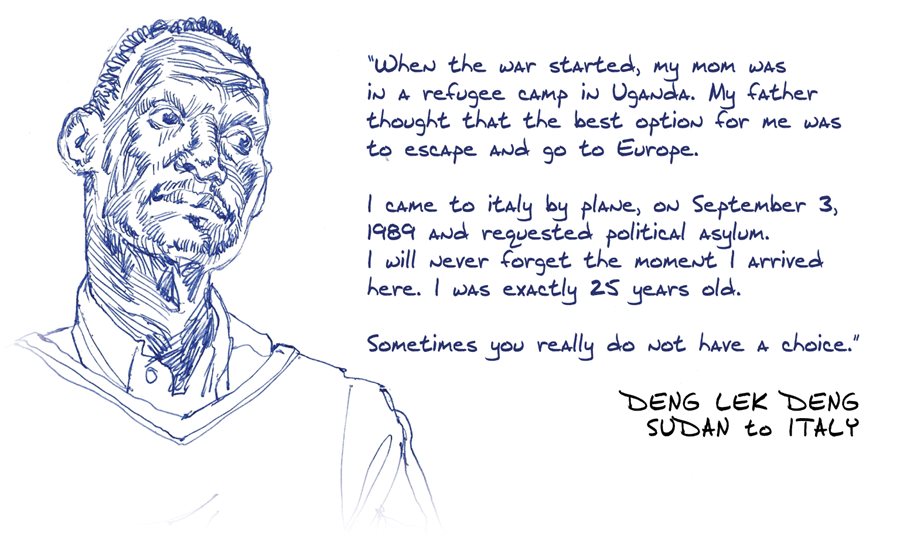 "When the war started, my mom was
in a refugee camp in Uganda. My father
thought that the best option for me was
to escape and go to Europe.
I came to italy by plane, on September 3,
1989 and requested political asylum.
I will never forget the moment I arrived
here. I was exactly 25 years old.
Sometimes you really do not have a choice."
DENG LEK DENG
SUDAN to ITALY